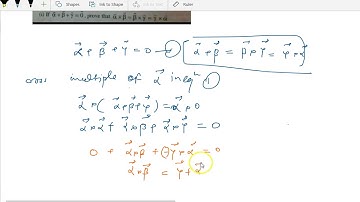 Shapes
Ink to Shape
Ink to Math
(b) If α⃗+β⃗+γ⃗=0, prove that α⃗×β⃗=β⃗×γ⃗=γ⃗×α⃗
α⃗ + β⃗ + γ⃗ = 0 —① α⃗ × β⃗ = β⃗ × γ⃗ = γ⃗ × α⃗
cross multiple of α⃗ in eqⁿ ①
α⃗ × (α⃗ + β⃗ + γ⃗) = α⃗ × 0
α⃗ × α⃗ + α⃗ × β⃗ + α⃗ × γ⃗ = 0
0 + α⃗ × β⃗ + (−γ⃗ × α⃗ = 0
α⃗ × β⃗ = γ⃗ + α⃗